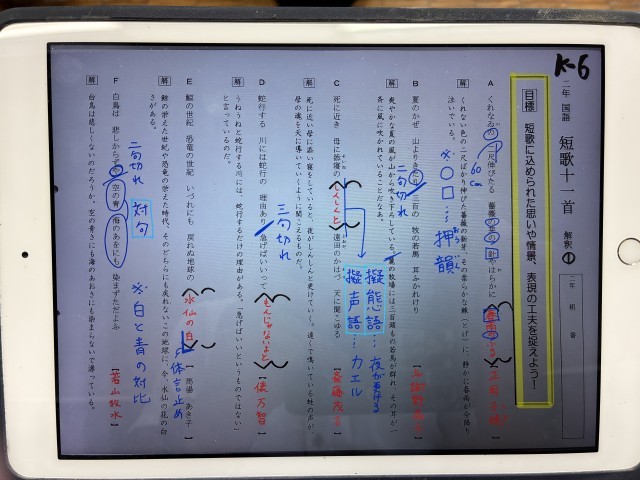 K-6
二年 国語 短歌十一首 解釈①
二年 組 番
目標 短歌に込められた思いや情景、表現の工夫を捉えよう!
A くれなゐの 二尺伸びたる 薔薇の芽の 針やはらかに 春雨のふる
60cm
※〇□…押韻
解 くれない色の二尺ばかり伸びた薔薇の新芽、その柔らかな棘(とげ)に、静かに春雨が今降り
注いでいる。
B 夏のかぜ 山よりきたり 三百の 牧の若馬 耳ふかれけり
二句切れ
解 爽やかな夏の風が山から吹きおろしている。
斉に風に吹かれていることだなあ。
C 死に近き 母に添寝の しんしんと 遠田のかはづ 天に聞こゆる 【斎藤茂吉】
擬態語…夜が更ける
擬声語…カエル
解 死に近い母に添い寝をしていると、夜がしんしんと更けていき、遠くで鳴いている蛙の声が
母の魂を天に導いていくように聞こえるものだ。
D 蛇行する 川には蛇行の 理由あり 急げばいいって もんじゃないよと 【俵万智】
三句切れ
解 うねうねと蛇行する川には、蛇行するだけの理由がある。「急げばいいというものではない」
と言っているのだ。
E 鯨の世紀 恐竜の世紀 いづれにも 戻れぬ地球の 水仙の白 【馬場 あき子】
体言止め
解 鯨の栄えた世紀や恐竜の栄えた時代、そのどちらにも戻れないこの地球に、今、水仙の花の白
さがある。
F 白鳥は 悲しからずや 空の青 海のあをにも 染まずただよふ 【若山牧水】
二句切れ 対句 ※白と青の対比
解 白鳥は悲しくないのだろうか。空の青さにも海のあおさにも染まらないで漂っている。